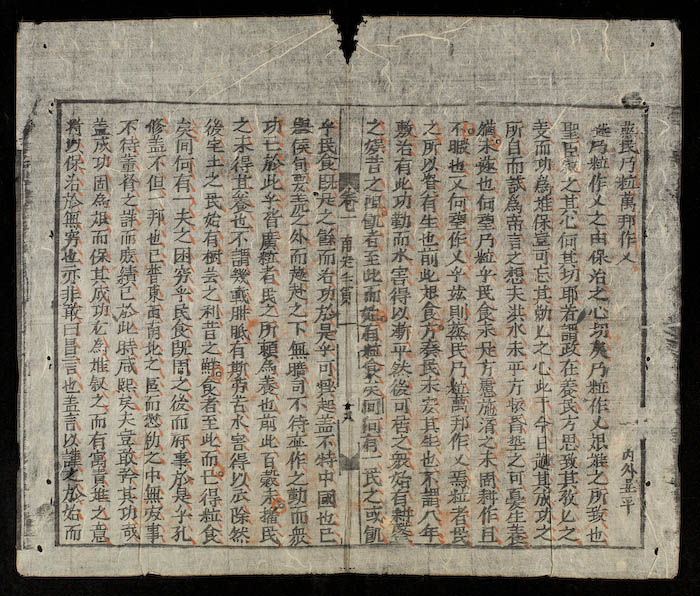 蒸民乃粒萬邦作乂
丙外五平
蒸乃粒作乂之由保治之心切矣乃粒作乂艱難之所致也
聖臣之其心何其功耶者謂政在養民方思致其後乂之
變而功為難保豈可忘其勤乂之心此于今日適其成功之
所自而試為帝言之想夫洪水未平方墊昏之可憂生養
猶未遂也何望乃粒乎民食未足方懋施濟之未固耕作且
不暇也又何望作乂乎玆則蒸民乃粒萬邦作乂焉粒者民
之所以養有生也前此艱食方奏民未安其生也不謂八年
敷治有此功勤而水害得以漸平然後可稽之穀始有耕
之嗟昔之阻飢者至此而始有粒食天間何有一民之或飢
卷一
乎民食既足之餘而治功於是乎可興起蓋不特中國也已
俱有聖之外而之下無曠司不待並作之勤而衆
功亡於此乎皆廣粒者民之所願為養也前此百穀未播民
之未得其養也不謂幾載胼胝有斯帝苦水害得以底除然
後宅土之民始有樹芸之利昔之艱食者至此而已得粒食
矣間何有一夫之困窮乎民食既周之後而府事於是乎孔
修蓋不但一邦也已普東西南北之區而懋勤之中無廢事
不待董督之詳而庶績已於此時咸熙矣夫豈敢幹其功哉
蓋成功固為艱而保其成功尤為難叙之而有寓責難之意
將以保治於無窮也亦非敢曰昌言也蓋言以謹之於始而